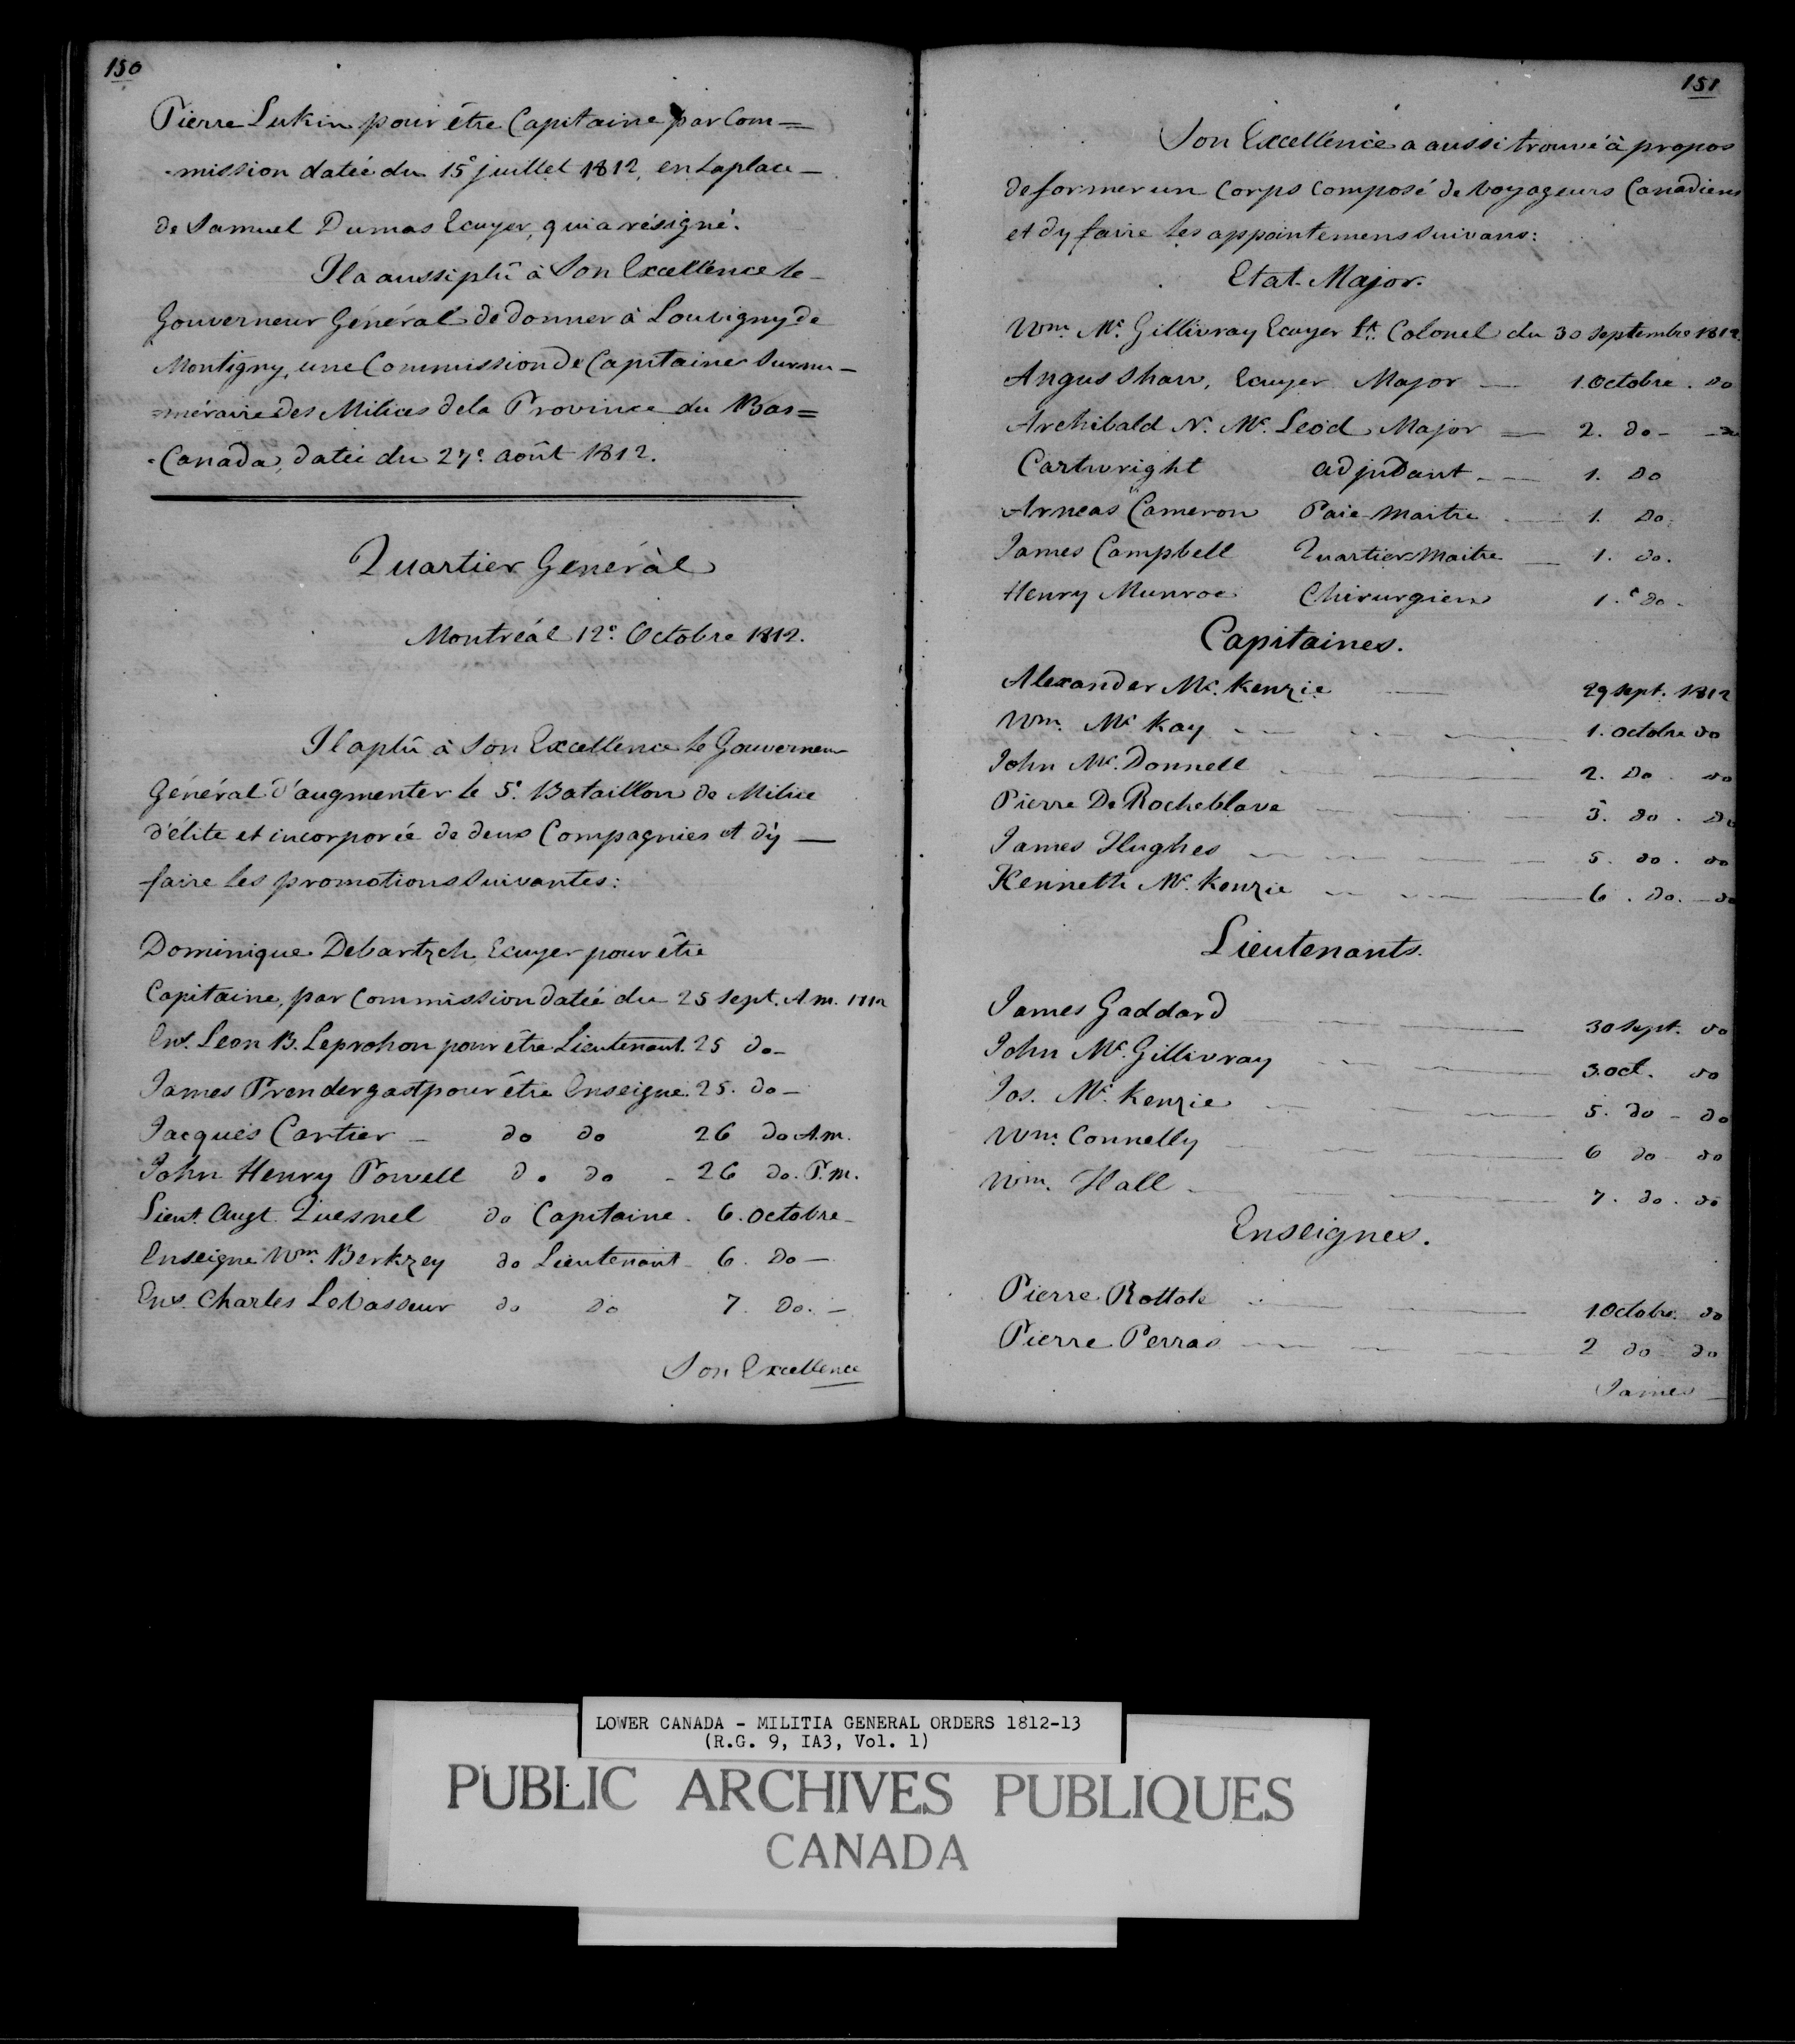 150
Pierre Lukin pour être Capitaine par Com=
-mission datée du 15e juillet 1812, en laplace -
de Samuel Dumas Ecuyer, qui a résigné.
Il a aussi plû à Son Excellence le -
Gouverneur Général de donner à Louvigny de
Montigny, une Commission de Capitaine Surnu-
=méraire des Milices dela Province du Bas=
-Canada, datée du 27e août 1812.
Quartier Général
Montréal 12e Octobre 1812.
Il a plû à Son Excellence le Gouverneur
Général d'augmenter le 5e Bataillon de Milice
d'élite et incorporée de deux Compagnies et d'y —
faire les promotions suivantes:
Dominique Debartzch, Ecuyer pour être
Capitaine, par Commission datée du 25 sept. A.m. 1812
Ens. Leon B. Leprohon pour être Lieutenant. 25 do -
James Prendergast pour être Enseigne. 25. do -
Jacques Cartier - do do 26 do A.m.
John Henry Powell do do - 26 do. P.m.
Lieut. Augt. Quesnel do Capitaine. 6. Octobre -
Enseigne Wm. Berkzey do Lieutenant - 6. Do —
Ens. Charles LeVasseur do do 7. Do. -
Son Excellence
151
Son Excellence a aussi trouvé à propos
de former un Corps composé de Voyageurs Canadiens
et d'y faire les appointemens suivans:
Etat-Major.
Wm. Mc. Gillivray Ecuyer Lt. Colonel du 30 septembre 1812.
Angus Shaw, Ecuyer Major — 1. Octobre. do
Archibald N. Mc. Leod Major — 2. do - do
Cartwright adjudant - — 1. do
Arneas Cameron Paie-Maitre — 1. do.
James Campbell Quartier Maitre — 1. do.
Henry Munroe Chirurgien 1.e do.
Capitaines.
Alexander Mc. Kenzie — 29 sept. 1812
Wm. Mc Kay — 1. octobre do
John Mc. Donnell — 2. do. do
Pierre De Rocheblave — 3. do. do
James Hughes — 5. do. do
Kenneth Mc. Kenzie — 6. do. - do
Lieutenants.
James Gaddard — 30 sept. do
John Mc. Gillivray — 3. oct. do
Jos. Mc. Kenzie — 5. do - do
Wm. Connelly — 6 do do
Wm. Hall — 7. do. do
Enseignes.
Pierre Rottote — 1. Octobre. do
Pierre Perras — 2 do do
James -
LOWER CANADA - MILITIA GENERAL ORDERS 1812-13
(R.G. 9, IA3, Vol. 1)
PUBLIC ARCHIVES PUBLIQUES
CANADA